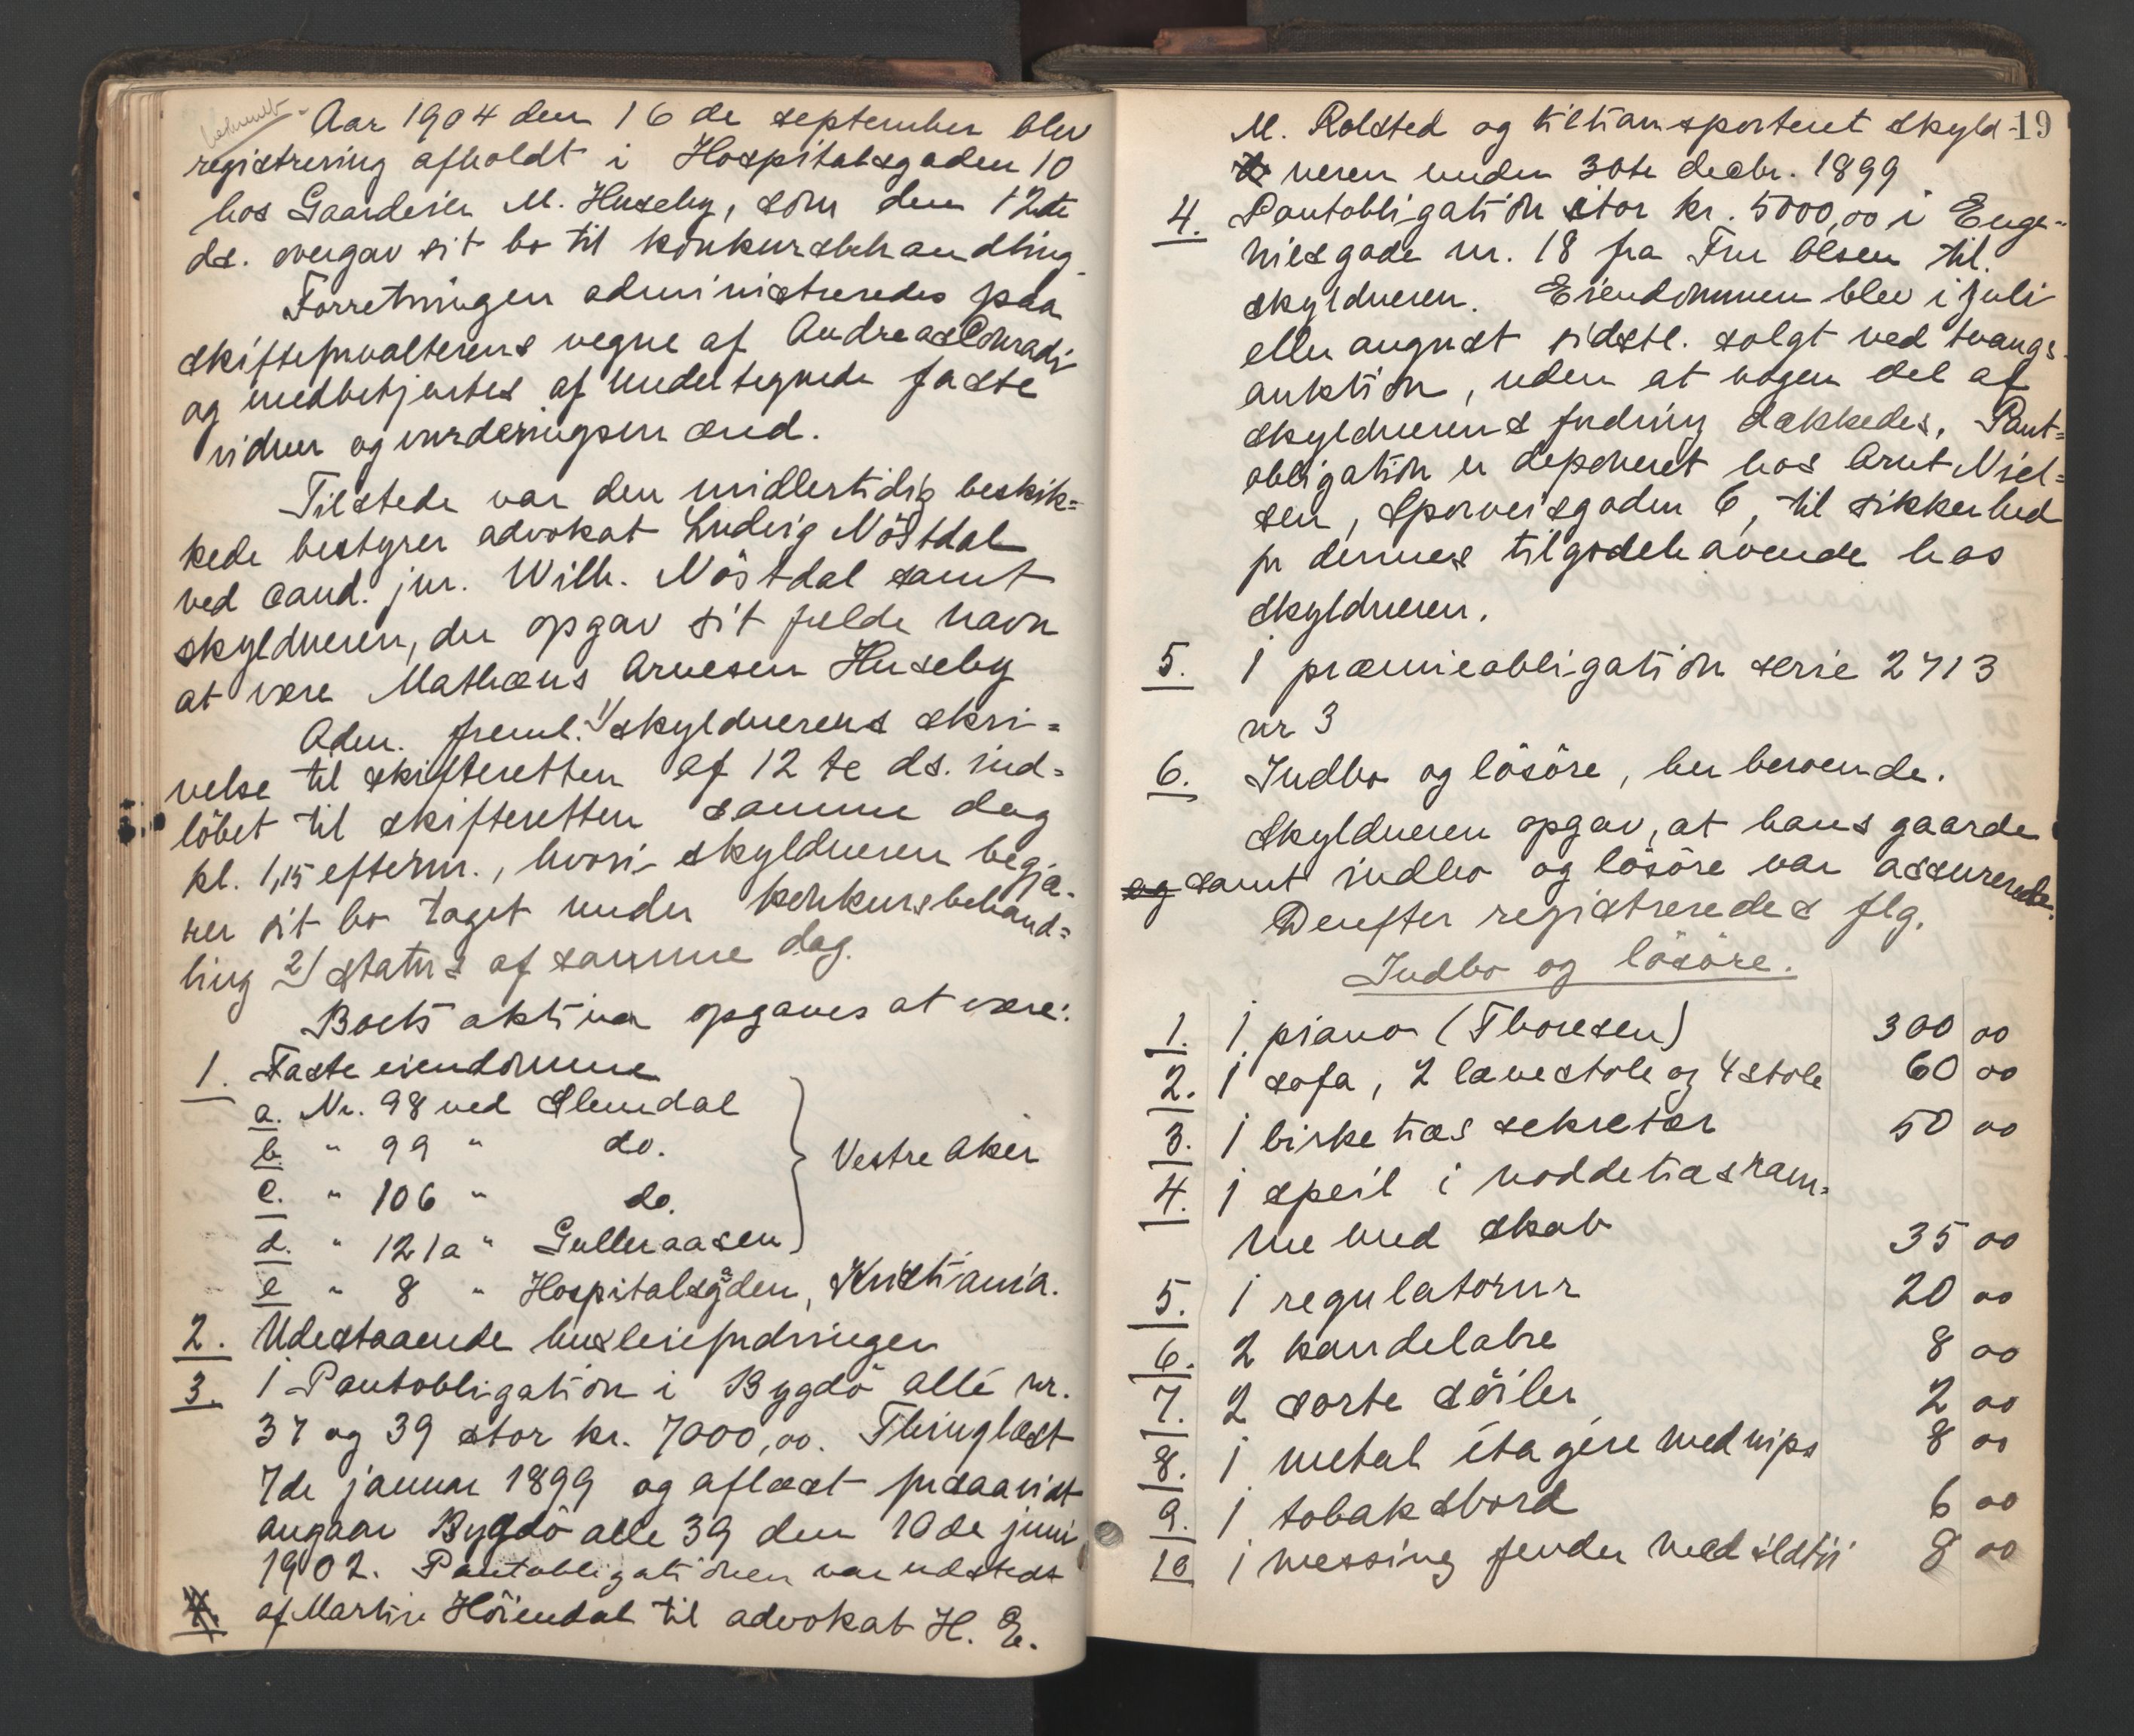 Aar 1904 den 16de september blev
registrering afholdt i Hospitalsgaden 10
hos Gaardeier M. Huseby, som den 12te
ds. overgav sit bo til konkursbehandling.
Forretningen administreredes paa
skifteforvalterens vegne af Andreas Conradi
og medbetjentes af undertegnede faste
vidner og vurderingsmænd.
Tilstede var den midlertidig beskik=
kede bestyrer advokat Ludvig Nöstdal
ved cand. jur. Wilh. Nöstdal samt
skyldneren, der opgav sit fulde navn
at være Mathæus Arnesen Huseby
Adm. freml. 1) skyldnerens skri=
velse til skifteretten af 12te ds. ind=
löbet til skifteretten samme dag
kl. 1,15 efterm., hvori skyldneren begjæ-
rer sit bo taget under konkursbehand=
ling 2) status af samme dag.
Boets aktiva opgaves at være:
1. Faste eiendomme
a. Nr. 98 ved Slemdal
b. " 99 " do.
c. " 106 " do. Vestre Aker
d. " 121a " Gulleraasen
e " 8 " Hospitalsgden, Kristiania.
2. Udestaaende husleiefordringer
3. 1 Pantobligation i Bygdö allé nr.
37 og 39 stor kr. 7000,00. Thinglæst
7de januar 1899 og aflæst forsaavidt
angaar Bygdö alle 39 den 10de juni
1902. Pantobligationen var udstedt
4. af Martin Höiendal til advokat H. E.
M. Rolsted og tiltransporteret skyld- 19
neren under 30te decbr. 1899
4. Pantobligation stor kr. 5000,00 i Euge-
niesgade nr. 18 fra Fru Olsen til
skyldneren. Eiendommen blev i juli
eller august sidstl. solgt ved tvangs-
auktion, uden at nogen del af
skyldnerens fordring dækkedes. Pant=
obligation er deponeret hos Arnt Niel=
sen, Sporveisgaden 6, til sikkerhed
for dennes tilgodehavende hos
skyldneren.
5. 1 præmieobligation serie 2713
nr 3
6. Indbo og lösöre, her beroende.
Skyldneren opgav, at hans gaarde
og samt indbo og lösöre var assurerede.
Derefter registreredes flg.
Indbo og lösöre.
1. 1 piano (Thoresen) 300 00
2. 1 sofa, 2 lænestole og 4 stole 60 00
3. 1 birketræs sekretær 50 00
4. 1 speil i nøddetræsram=
me med skab 35 00
5. 1 regulatorur 20 00
6. 2 kandelabre 8 00
7. 2 sorte söiler 2 00
8. 1 metal étagère med nips 8 00
9. 1 tobaksbord 6 00
10 1 messing fender med ildtöi 8 00